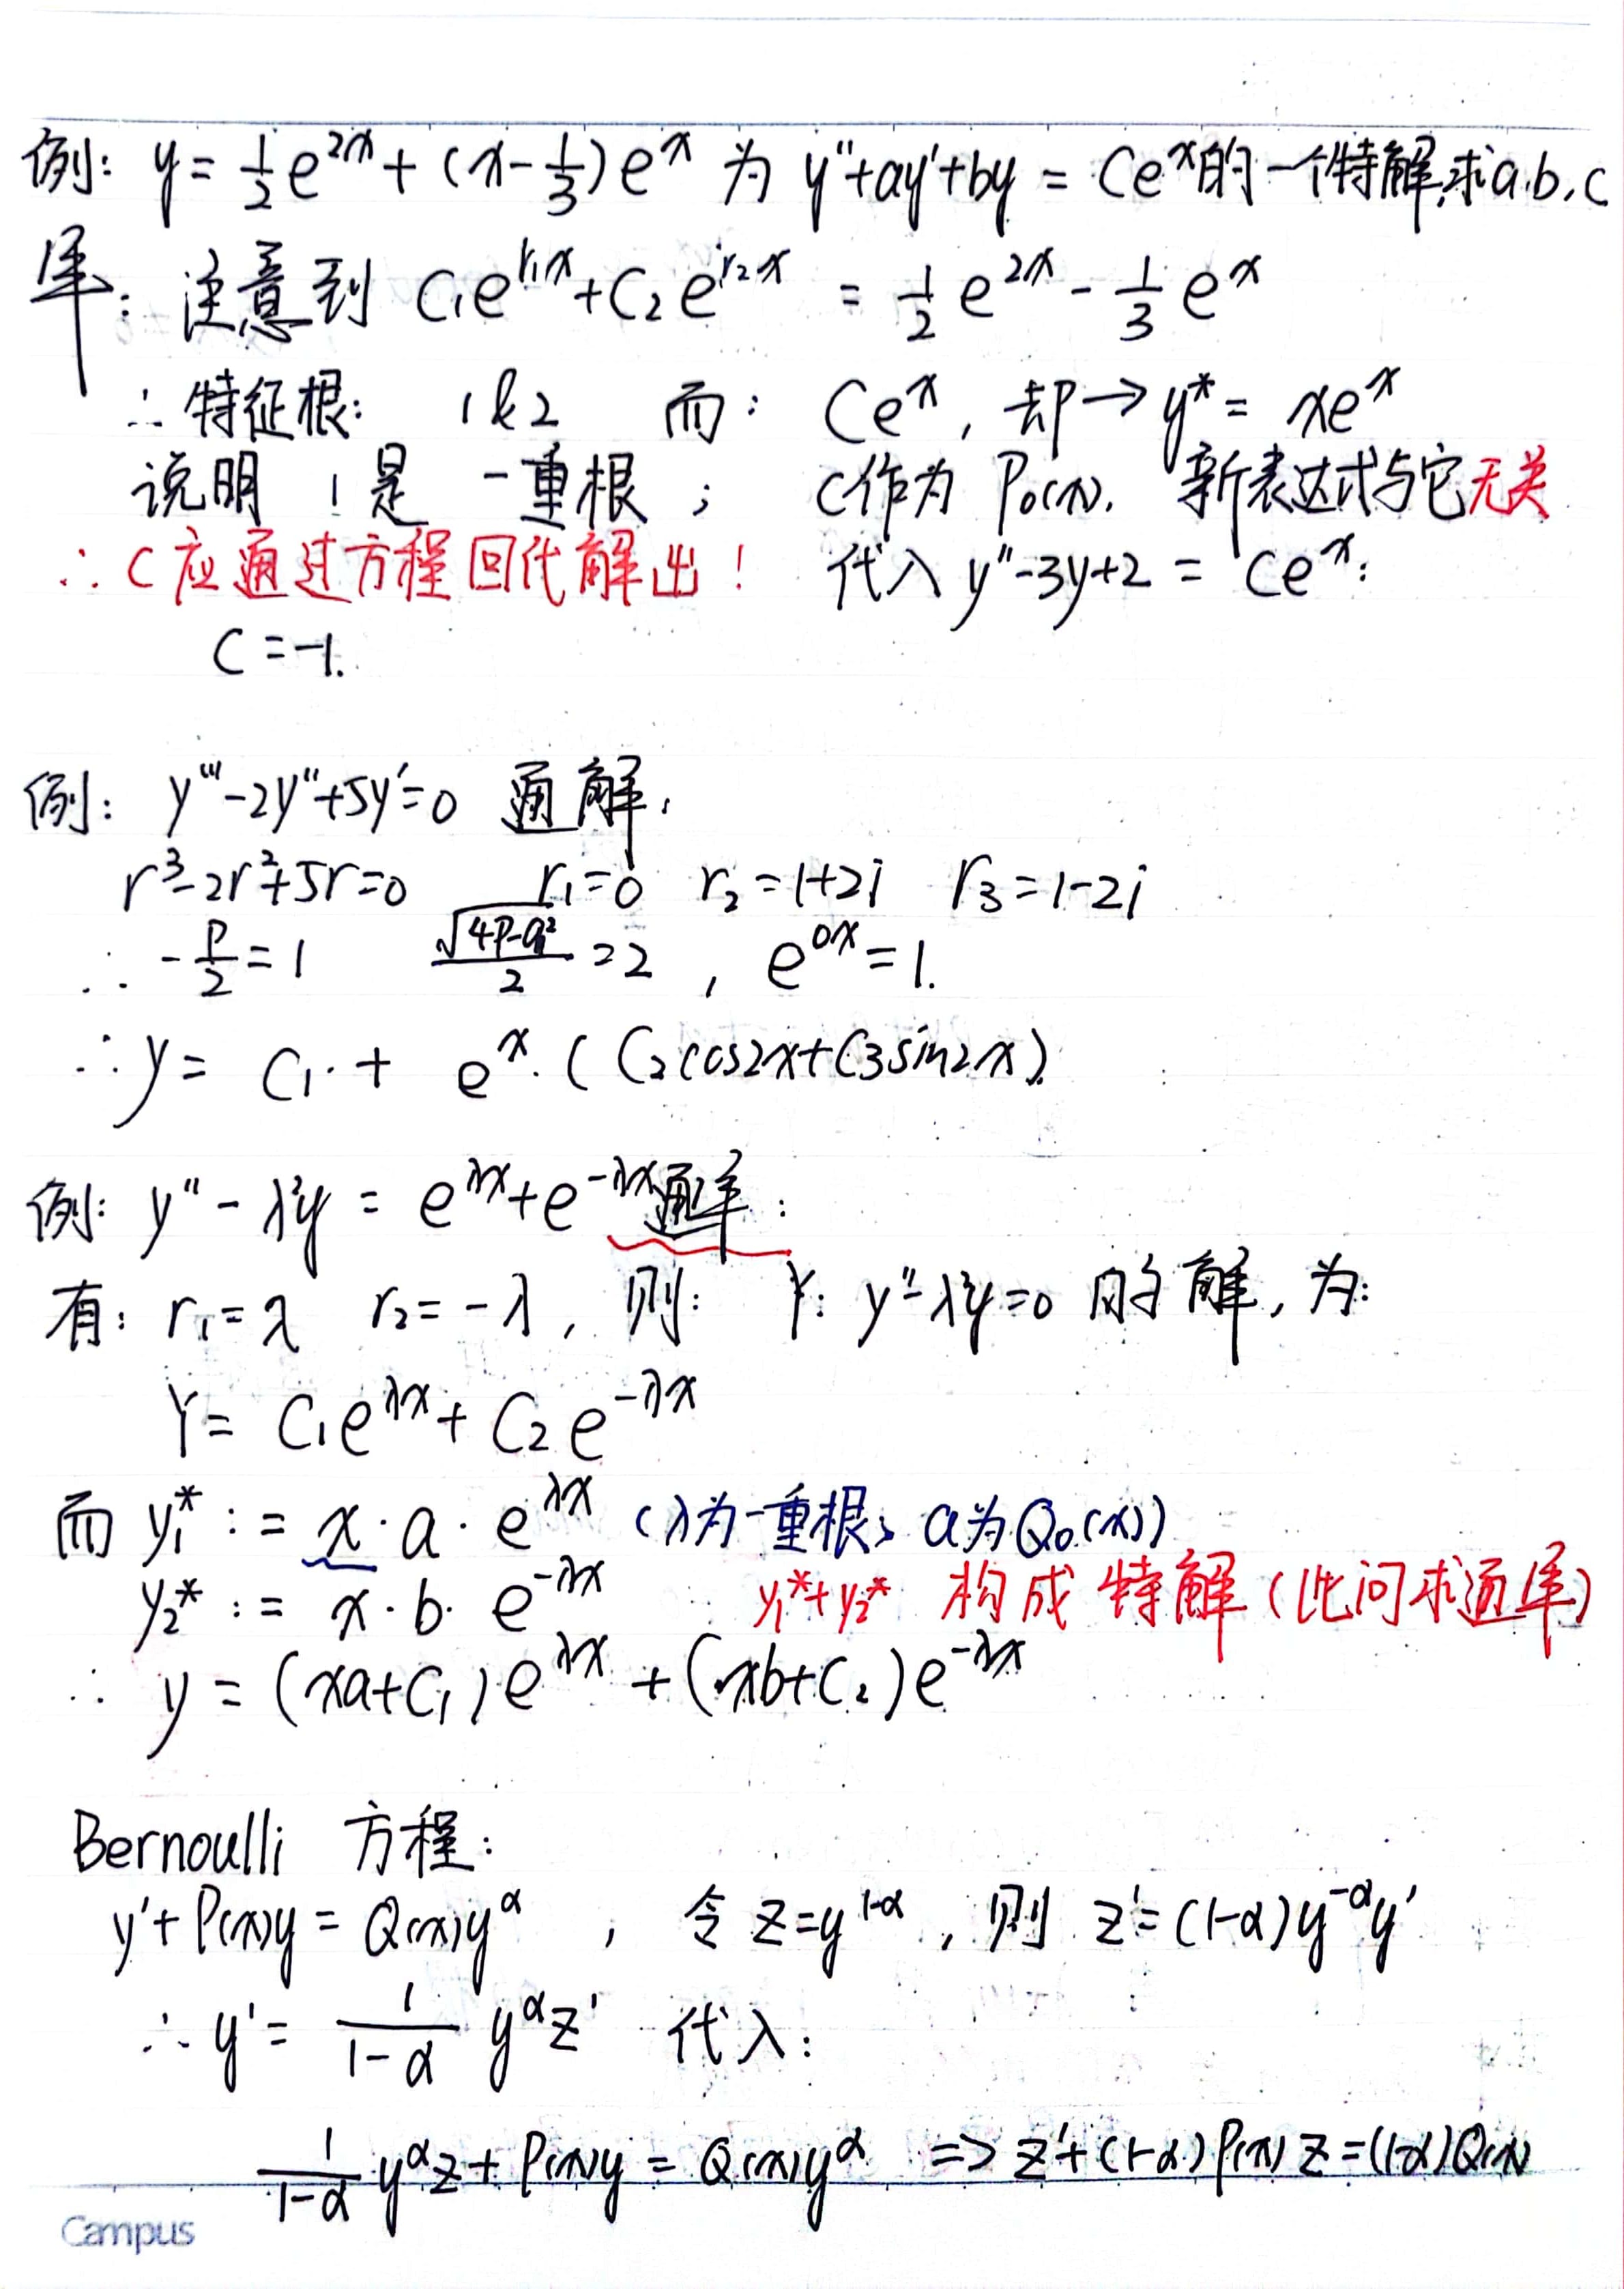 例: y = 1/2 e^{2x} + (x - 1/3) e^x 为 y'' + ay' + by = Ce^x 的一个特解, 求 a.b.c
解: 注意到 C₁e^{r₁x} + C₂e^{r₂x} = 1/2 e^{2x} - 1/3 e^x
∴ 特征根: 1 & 2 而: Ce^x, 却 → y* = xe^x
说明 1 是 一重根; C作为 P₀(x). 新表达式与它无关
∴ C 应通过方程回代解出! 代入 y''-3y+2 = Ce^x:
C = -1.
例: y''' - 2y'' + 5y' = 0 通解.
r³ - 2r² + 5r = 0 r₁ = 0 r₂ = 1+2i r₃ = 1-2i
∴ -P/2 = 1 √(4P-q²)/2 = 2, e^{0x} = 1.
∴ y = C₁ · + e^x. (C₂cos2x + C₃sin2x)
例: y'' - λ²y = e^{λx} + e^{-λx} 通解:
有: r₁ = λ r₂ = -λ, 则: Y: y'' - λ²y = 0 的解, 为:
Y = C₁e^{λx} + C₂e^{-λx}
而 y₁* := x · a · e^{λx} (λ为一重根; a为Q₀(x))
y₂* := x · b · e^{-λx} y₁* + y₂* 构成特解 (此问求通解)
∴ y = (xa + C₁)e^{λx} + (xb + C₂)e^{-λx}
Bernoulli 方程:
y' + P(x)y = Q(x)y^α , 令 z = y^{1-α}, 则 z' = (1-α)y^{-α}y'
∴ y' = 1/(1-α) y^α z' 代入:
1/(1-α) y^α z + P(x)y = Q(x)y^α => z' + (1-α)P(x)z = (1-α)Q(x)
Campus